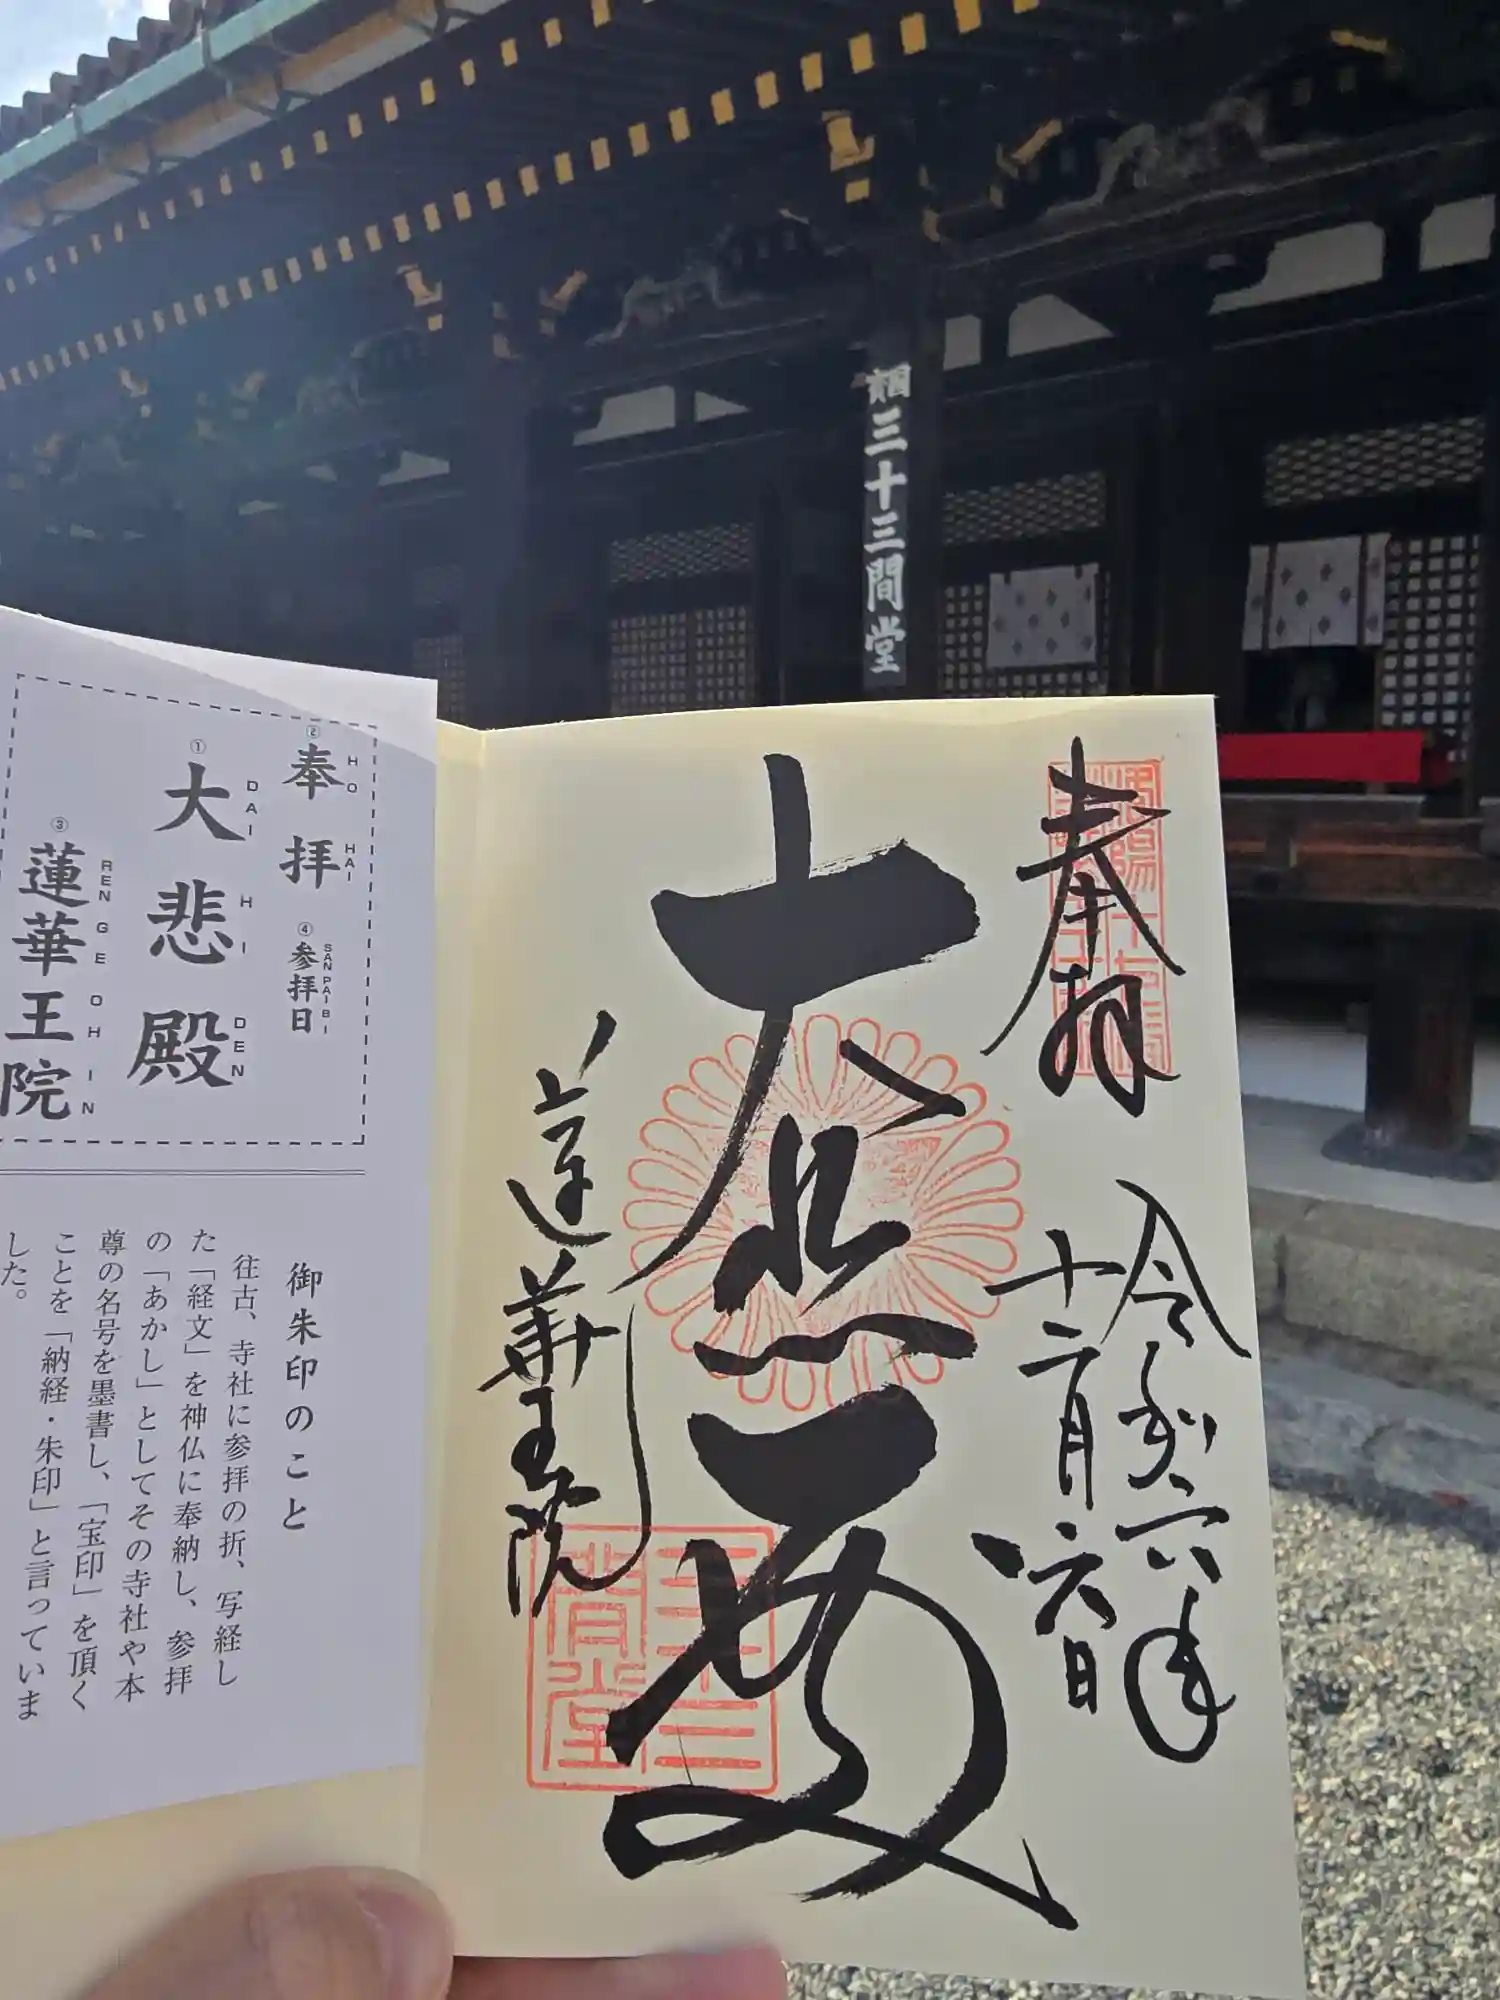 國寶
三十三間堂
②
奉拝
HO HAI
④
参拝日
SAN PAI BI
①
大悲殿
DAI HI DEN
③
蓮華王院
REN GE OH IN
御朱印のこと
往古、寺社に参拝の折、写経し
た「経文」を神仏に奉納し、参拝
の「あかし」としてその寺社や本
尊の名号を墨書し、「宝印」を頂く
ことを「納経・朱印」と言っていま
した。
奉拝
令和六年
十二月六日
大悲殿
蓮華王院
三十三間堂